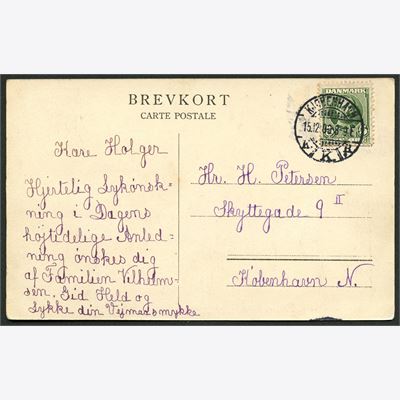 BREVKORT
CARTE POSTALE
DANMARK
KJØBENHAVN
15.12.
Kære Holger
Hjertelig Lykønsk=
ning i Dagens
højtidelige Anled=
ning ønskes dig
af Familien Vilhelm=
sen. Gid Held og
Lykke din Vej
smykke
Hr. H. Petersen
Skyttegade 9 II
København N.